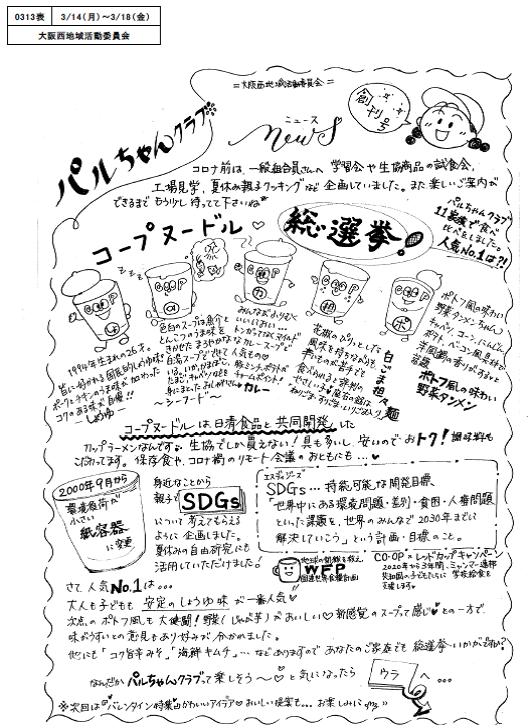 0313表 3/14(月)～3/18(金)
大阪西地域活動委員会
=大阪西地域活動委員会=
創刊号
パルちゃんクラブ
ニュース
news
コロナ前は、一般組合員さんへ 学習会や生協商品の試食会、
工場見学、夏休み親子クッキングなど企画していました。また楽しいご案内が
できるまでもう少し待ってて下さいね
パルちゃんクラブ
11名で食べ
比べをしました。
人気No.1は?!
コープヌードル
総選挙。
1994年生まれの26才。
皆に好かれる国民的しょうゆ味
ポークとチキンのうま味が加わった
コクのある味が自慢!!
〜しょうゆ〜
色白のスープは魚介と
とんこつのうま味を
きかせたまろやかな
白湯スープです。
〜シーフード〜
みんながよりつく
いいにおい…
トンがってなくマイルド
なカレースープで
人気もの♡
カレー
白ごま担々麺
花椒のぴりっとした
風味を持ちながらも、
辛いものが苦手でも
食べられると評判の
ポトフ風の味わい
野菜タンメンちゃん♪
キャベツ、コーン、にんじん
ポテト、ベーコン風具材で
洋風鍋の香りがすると
話題
ポトフ風の味わい
野菜タンメン
コープヌードルは日清食品と共同開発した
カップラーメンなんです。生協でしか買えない!具も多いし、安いのでおトク!調味料も
こだわってます。保存食や、コロナ禍のリモート会議のおともにも…♥
2000年9月から
環境負荷が
小さい
紙容器
に変更
身近なことから
親子で SDGs
について考えてもらえる
ように企画しました。
夏休みの自由研究にも
活用していただけました。
エスディジーズ
SDGs…持続可能な開発目標
「世界中にある環境問題・差別・貧困・人権問題
といった課題を、世界のみんなで2030年までに
解決していこう」という計画・目標のこと。
地球の飢餓を救え
WFP
国連世界食糧計画
CO・OP×レッドカップキャンペーン
2020年から3年間、ミャンマー連邦
共和国の子どもたちに学校給食を
支援します。
さて人気No.1は…
大人も子どもも 安定のしょうゆ味が一番人気♡
次点のポトフ風も大健闘!野菜(じゃが芋)がおいしい♡新感覚のスープって感じ♥との一方で、
味がうすいとの意見もあり好みが分かれました。
他にも「コク旨辛みそ」「海鮮キムチ」…などありますのであなたのご家庭でも総選挙いかがですか?
なんだかパルちゃんクラブって楽しそう〜♡と気になったら ウラ へ…
※次回は『バレンタイン特集』かわいいアイデア♡おいしい提案も…お楽しみに